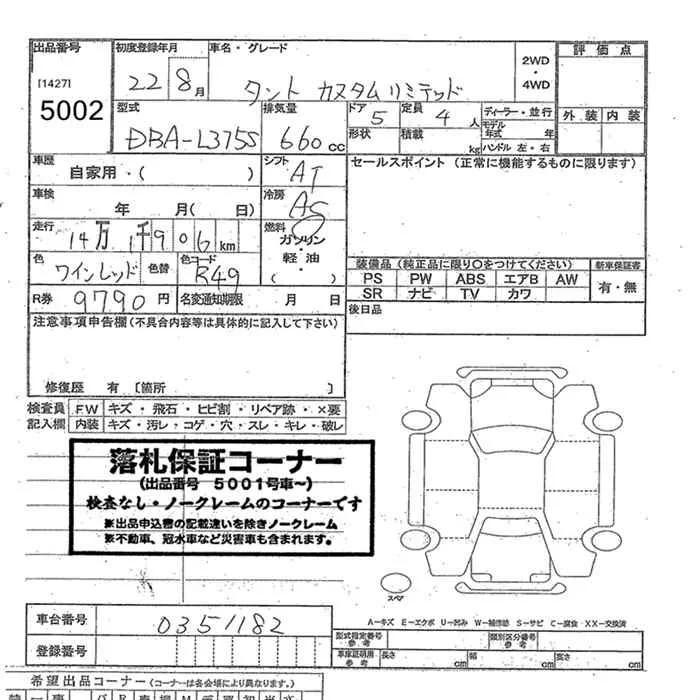 出品番号 初度登録年月 車名・グレード 評価点
[1427] 22 8月 タント カスタムリミテッド 2WD・4WD
5002 外装 内装
型式 排気量 ドア 定員 ディーラー・並行
DBA-L375S 660cc 5 4人 モデル年式 年
形状 積載 kg ハンドル 左・右
車歴 自家用・( ) シフト AT セールスポイント (正常に機能するものに限ります)
車検 年 月( 日) 冷房 AC
走行 14万1千906km 燃料 ガソリン・軽油( )
色 ワインレッド 色替 色コード R49
装備品 (純正品に限り〇をつけてください) 新車保証書
PS PW ABS エアB AW 有・無
SR ナビ TV カワ
R券 9790円 名変通知期限 月 日 後日品
注意事項申告欄(不具合内容等は具体的に記入して下さい)
修復歴 有 〔箇所 〕
検査員 FW キズ・飛石・ヒビ割・リペア跡・×要
記入欄 内装 キズ・汚レ・コゲ・穴・スレ・キレ・破レ
落札保証コーナー
(出品番号 5001号車〜)
検査なし・ノークレームのコーナーです
※出品申込書の記載違いを除きノークレーム
※不動車、冠水車など災害車も含まれます。
スペア
A−キズ E−エクボ U−凹み W−補修跡 S−サビ C−腐食 XX−交換済
車台番号 0351182
型式指定番号 参考 類別区分番号 参考
登録番号 車庫証明用 参考 長さ cm 幅 cm 高さ cm
希望出品コーナー(コーナーは各会場により異なります。)